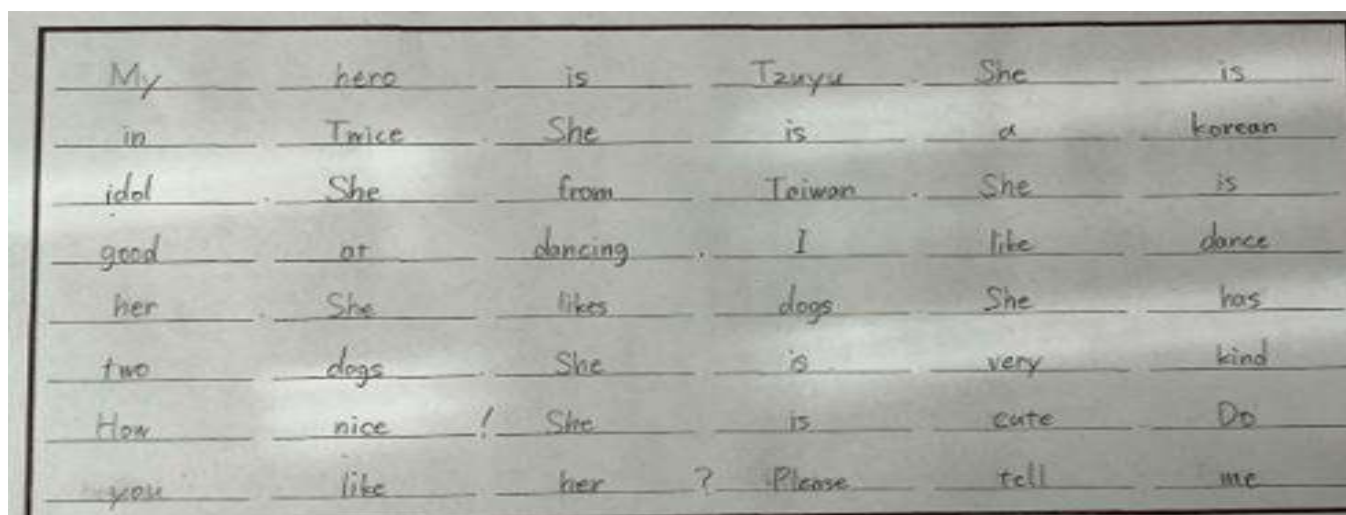 My hero is Tzuyu. She is
in Twice. She is a korean
idol. She from Taiwan. She is
good at dancing. I like dance
her. She likes dogs She has
two dogs. She is very kind
How nice! She is cute Do
you like her? Please tell me